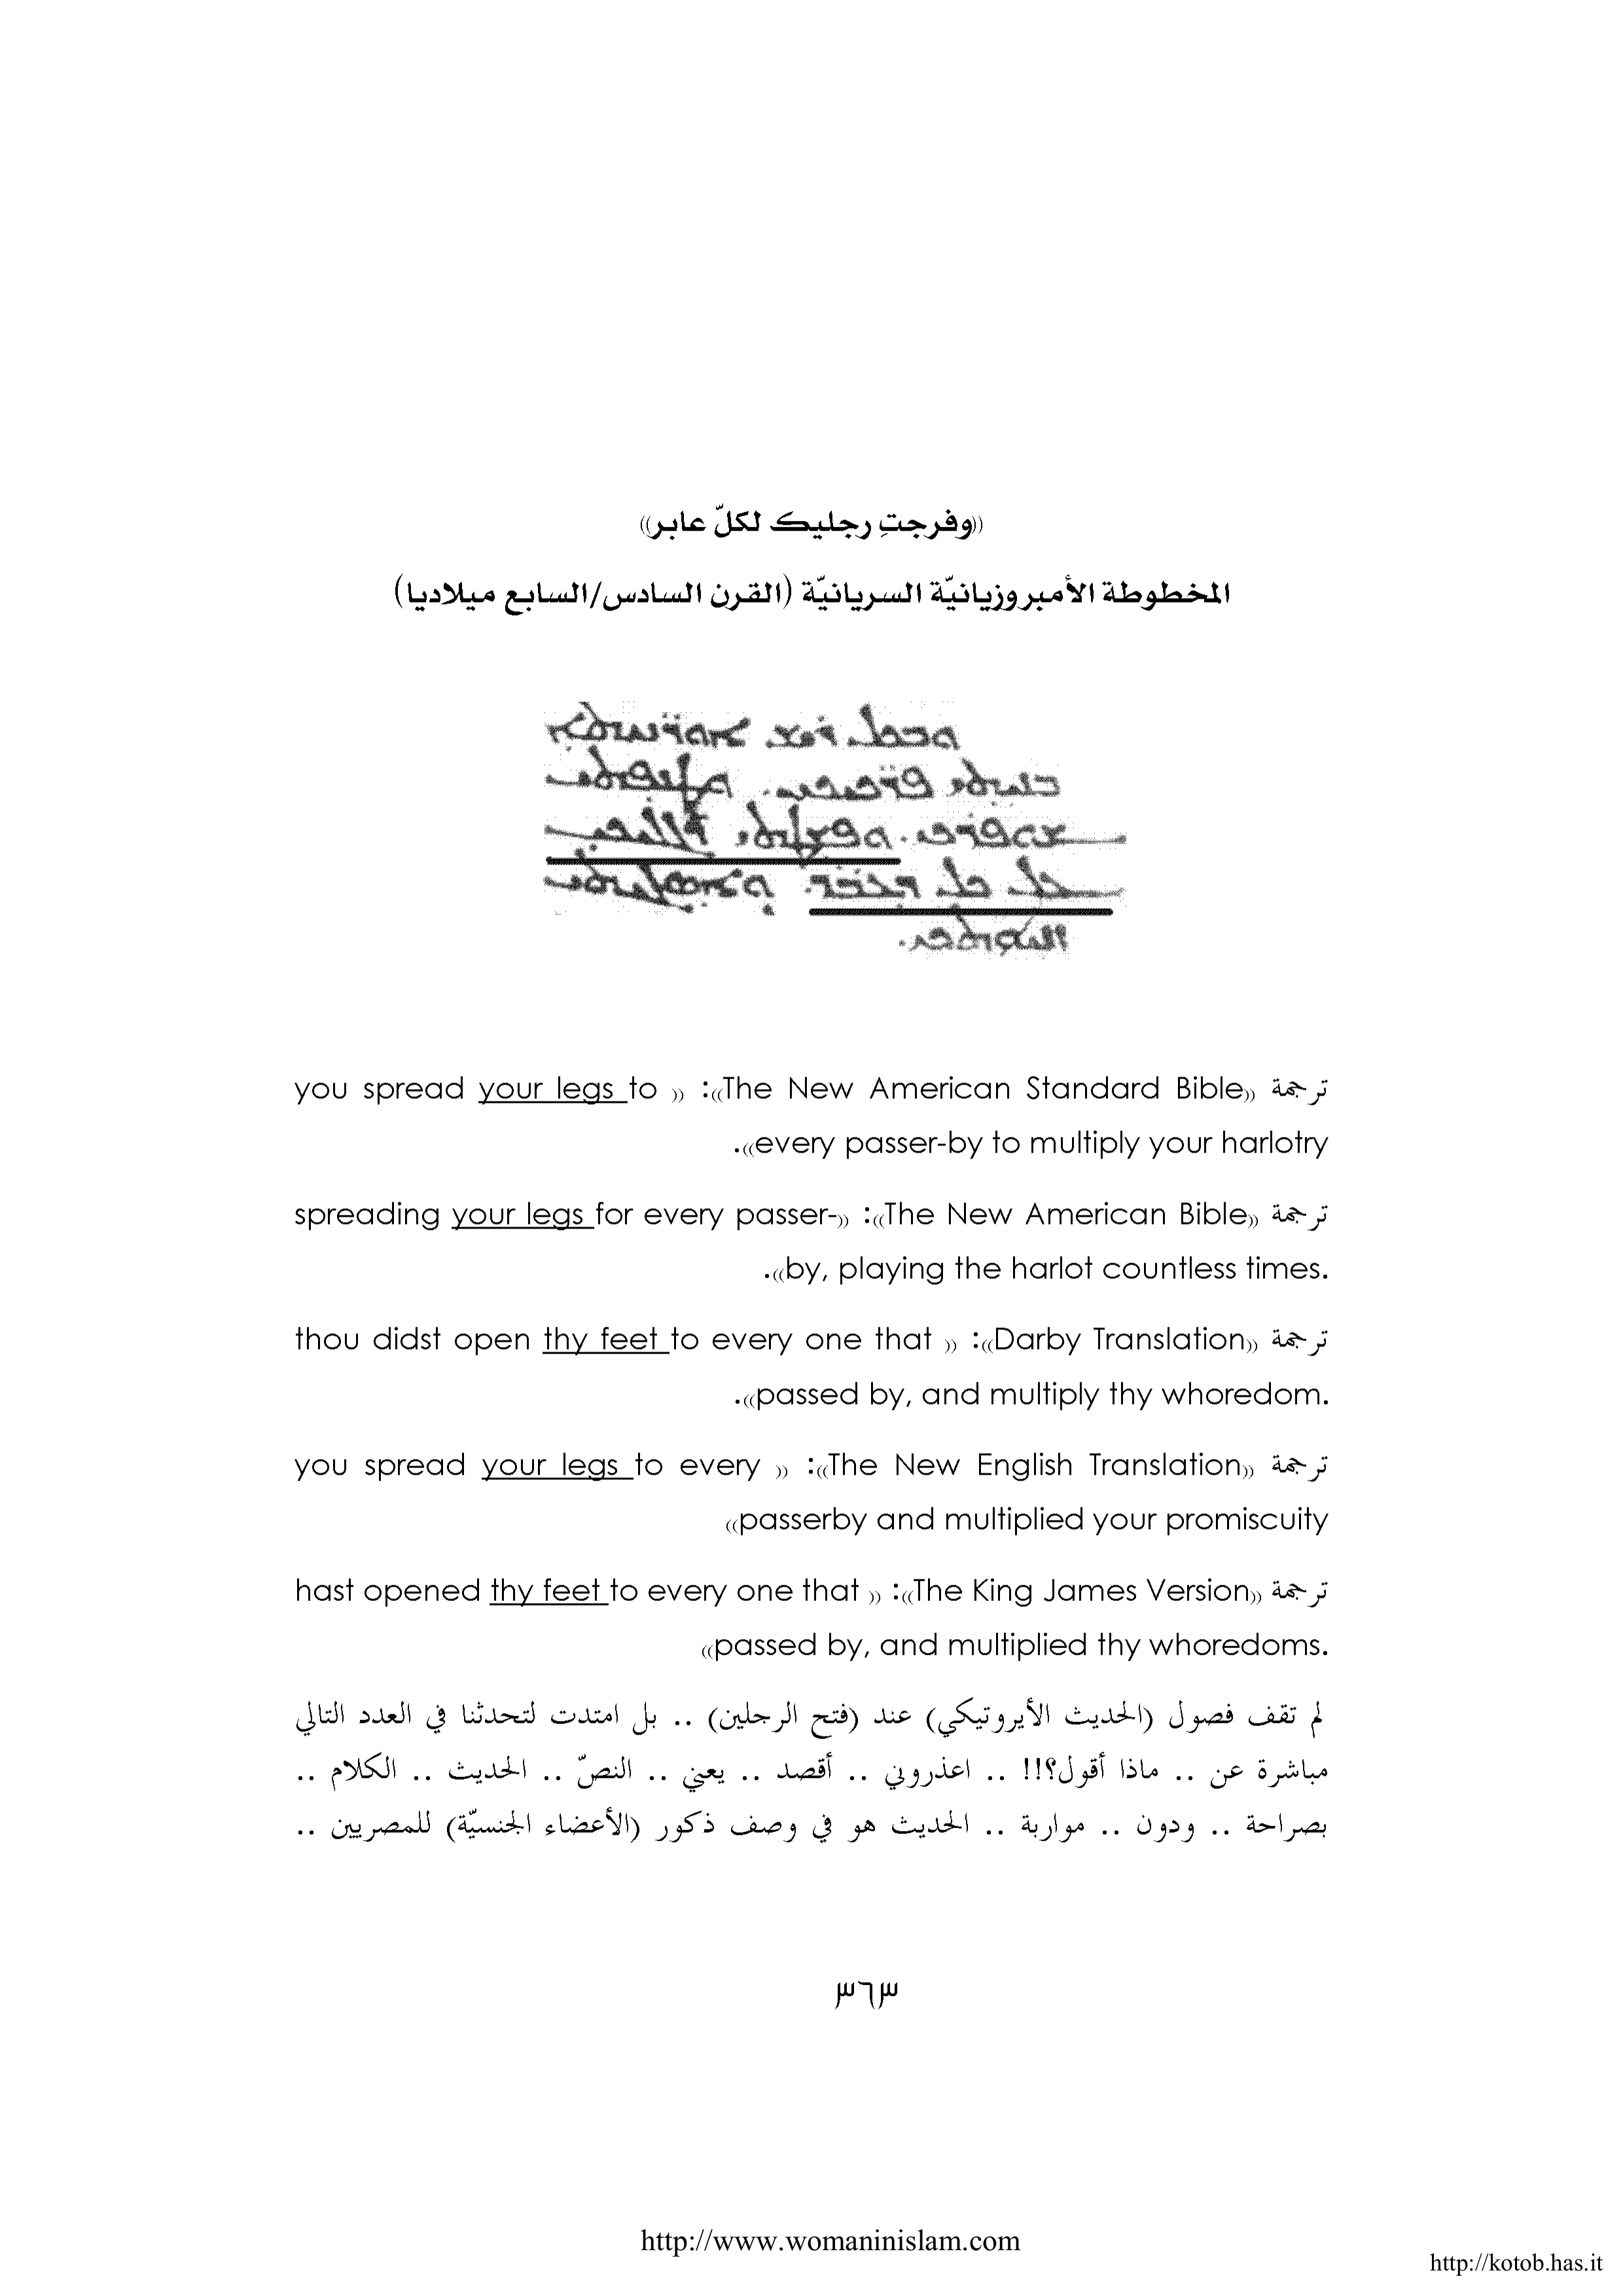 ((وفرجتِ رجليك لكلّ عابر))
المخطوطة الأمبروزيانيّة السريانيّة (القرن السادس/السابع ميلاديا)
ترجمة ((The New American Standard Bible)): (( you spread your legs to
every passer-by to multiply your harlotry)).
ترجمة ((The New American Bible)): ((spreading your legs for every passer-
by, playing the harlot countless times.)).
ترجمة ((Darby Translation)): (( thou didst open thy feet to every one that
passed by, and multiply thy whoredom.)).
ترجمة ((The New English Translation)): (( you spread your legs to every
passerby and multiplied your promiscuity))
ترجمة ((The King James Version)): (( hast opened thy feet to every one that
passed by, and multiplied thy whoredoms.))
لم تقف فصول (الحديث الأيروتيكي) عند (فتح الرجلين) .. بل امتدت لتحدثنا في العدد التالي
مباشرة عن .. ماذا أقول؟!!! .. اعذروني .. أقصد .. يعني .. النصّ .. الحديث .. الكلام ..
بصراحة .. ودون .. مواربة .. الحديث هو في وصف ذكور (الأعضاء الجنسيّة) للمصريين ..
٣٦٣
http://www.womaninislam.com
http://kotob.has.it